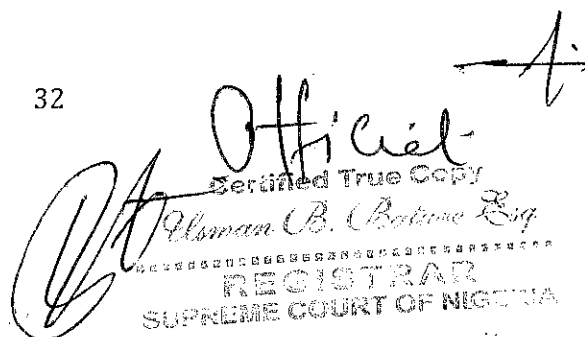 32
Official
Certified True Copy
Usman B. Bature Esq
REGISTRAR
SUPREME COURT OF NIGERIA